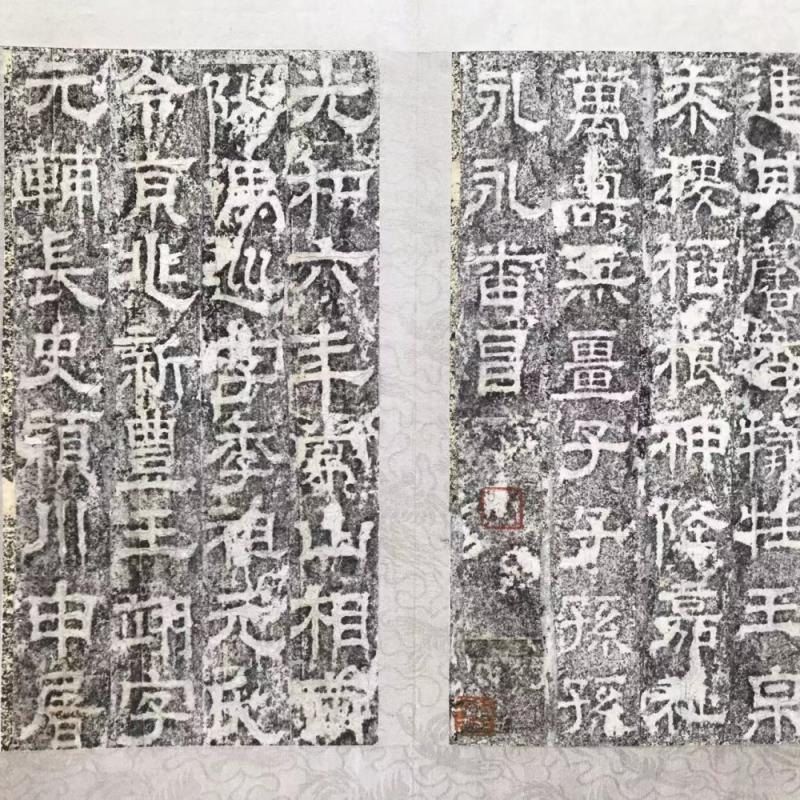 進其馨香犧牲玉帛
黍稷稻粮神降嘉祉
萬壽無疆子子孫孫
永永番昌
光和六年常山相南
陽馮巡字季祖元氏
令京兆新豐王翊字
元輔長史潁川申屠